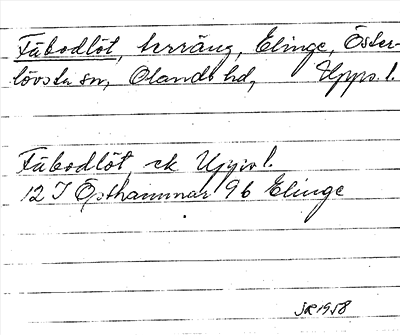 Fäbodlöt, terräng, Elinge, Öster-
lövsta sn, Olands hd, Upps. l.
Fäbodlöt ek Upps l.
12 I Östhammar 9b Elinge
SR 1958